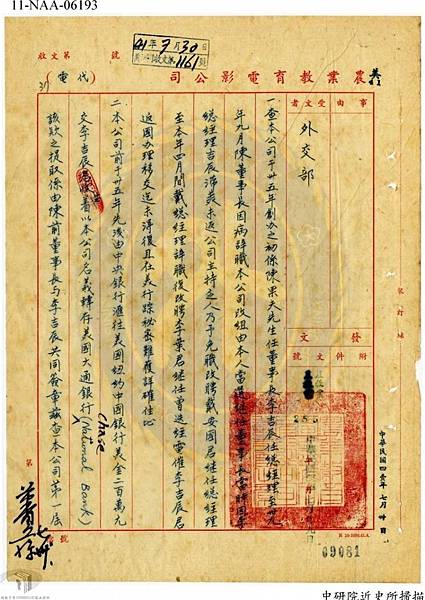 11-NAA-06193
41年7月30日
1161號
收文第 號
農業教育電影公司（代電）
事由 受文者
外交部
發文
附件 文號
中華民國四壹年七月卅日
一、查本公司于卅五年創辦之初係陳果夫先生任董事長李吉辰任總經理至卅九
年九月陳董事長因病辭職本公司改組由本人當選繼任董事長當時因李
總經理吉辰滯美未返公司主持乏人乃予免職改聘戴安國君繼任總經理
至本年四月間戴總經理辭職復改聘李葉君繼任曾迭經電催李吉辰君
返國办理移交迄未得復且在美行踪秘密難獲詳確住址
二、本公司前于卅五年先後由中央銀行滙往美國紐約中國銀行美金二百萬元
交李吉辰 以本公司名義轉存美國大通銀行（Chase National Bank）
該欵之提取係由陳前董事長與李吉辰共同簽章茲查（本公司第一屆
裝訂線
第 號
09081
中研院近史所掃描